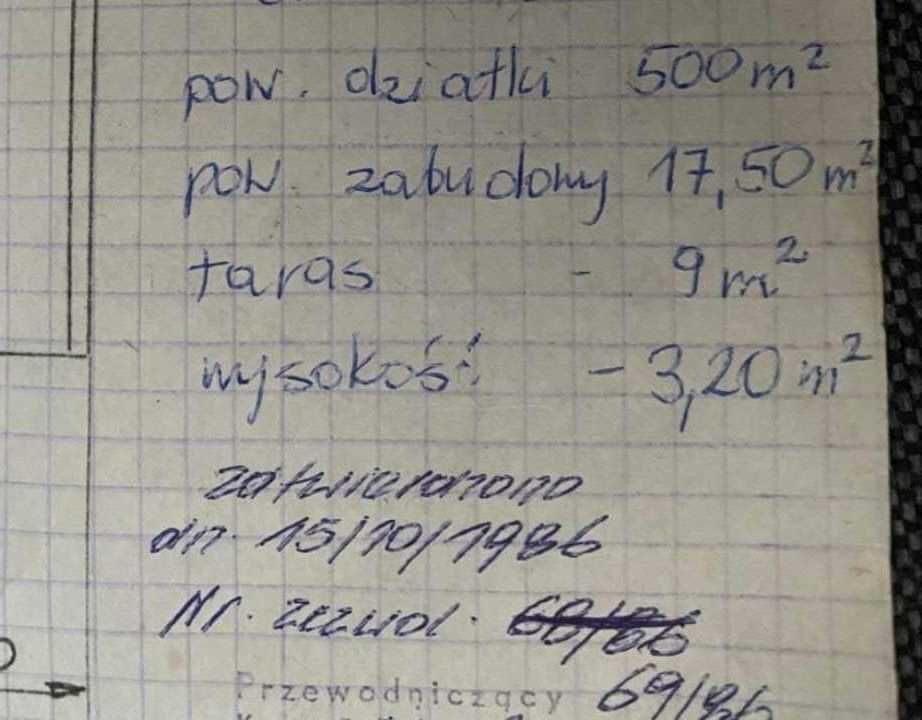 pow. działki 500 m²
pow. zabudowy 17,50 m²
taras - 9 m²
wysokość - 3,20 m²
zatwierdzono
dn. 15/10/1986
Nr. zezwol. 68/86
Przewodniczący 69/86